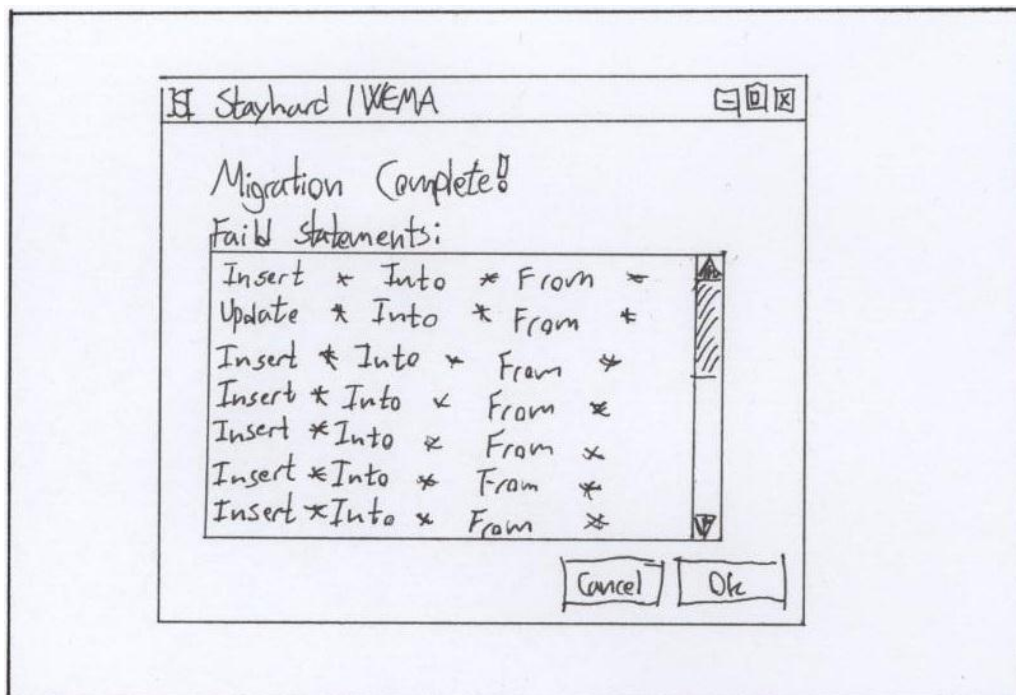 Stayhard IWEMA
Migration Complete!
Faild Statements:
Insert * Into * From *
Update * Into * From *
Insert * Into * From *
Insert * Into * From *
Insert * Into * From *
Insert * Into * From *
Insert * Into * From *
Cancel Ok